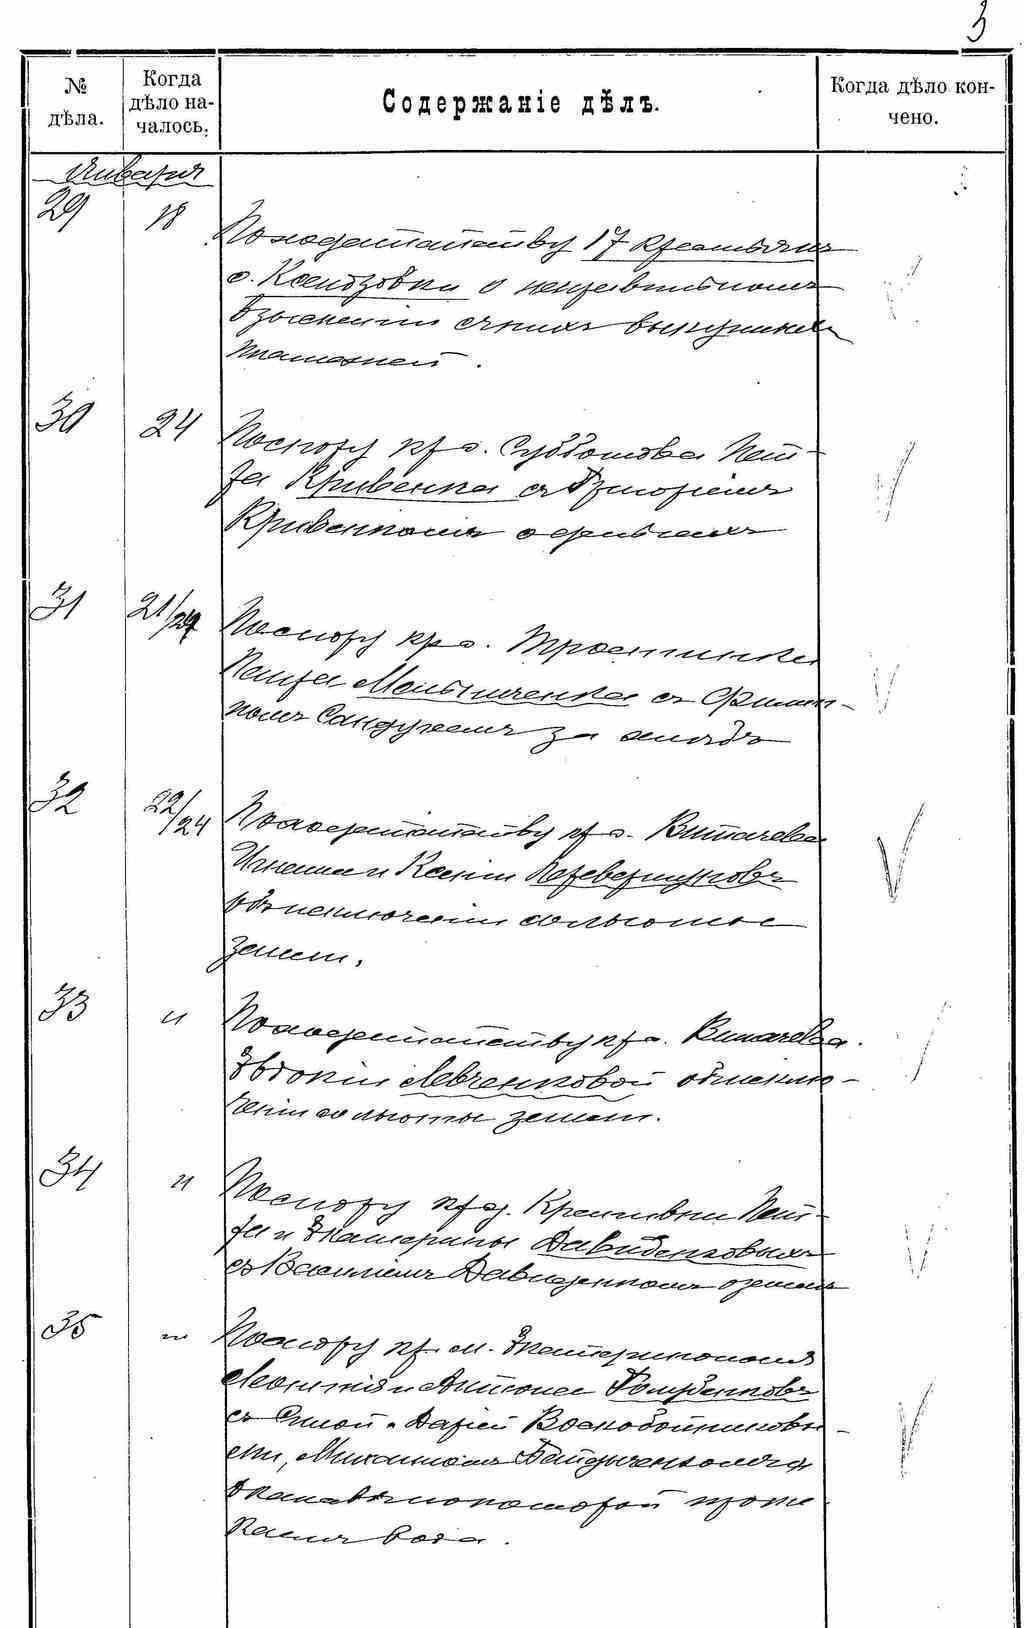 3
№ дѣла.
Когда дѣло началось.
Содержаніе дѣлъ.
Когда дѣло кончено.
Января
29 18 По ходатайству 17 крестьянъ
с. Ксендзовки о неправильномъ
взысканіи съ нихъ выкупныхъ
платежей.
30 24 По спору кр. с. Субботова Пет-
ра Кривенка съ Григоріемъ
Кривенкомъ о
31 21/24 По спору кр. с. Тростинки
Петра Мельниченка съ Филип-
помъ за
32 22/24 По ходатайству кр. с. Витачева
Игната и Ксеніи Перевертуновъ
объ исключеніи съ льготы
земли.
33 " По ходатайству кр. с. Витачева
Евдокіи Левченковой объ исклю-
ченіи съ льготы земли.
34 " По спору кр. д. Кренивки Пет-
ра и Екатерины Давиденковыхъ
съ Василіемъ Давиденкомъ о земле
35 " По спору кр. м. Екатеринополя
Леонтія и Антона Голубенковъ
съ и Дарьей Воскобойниковы-
ми, Михаиломъ
канавѣ по которой проте-
каетъ вода.